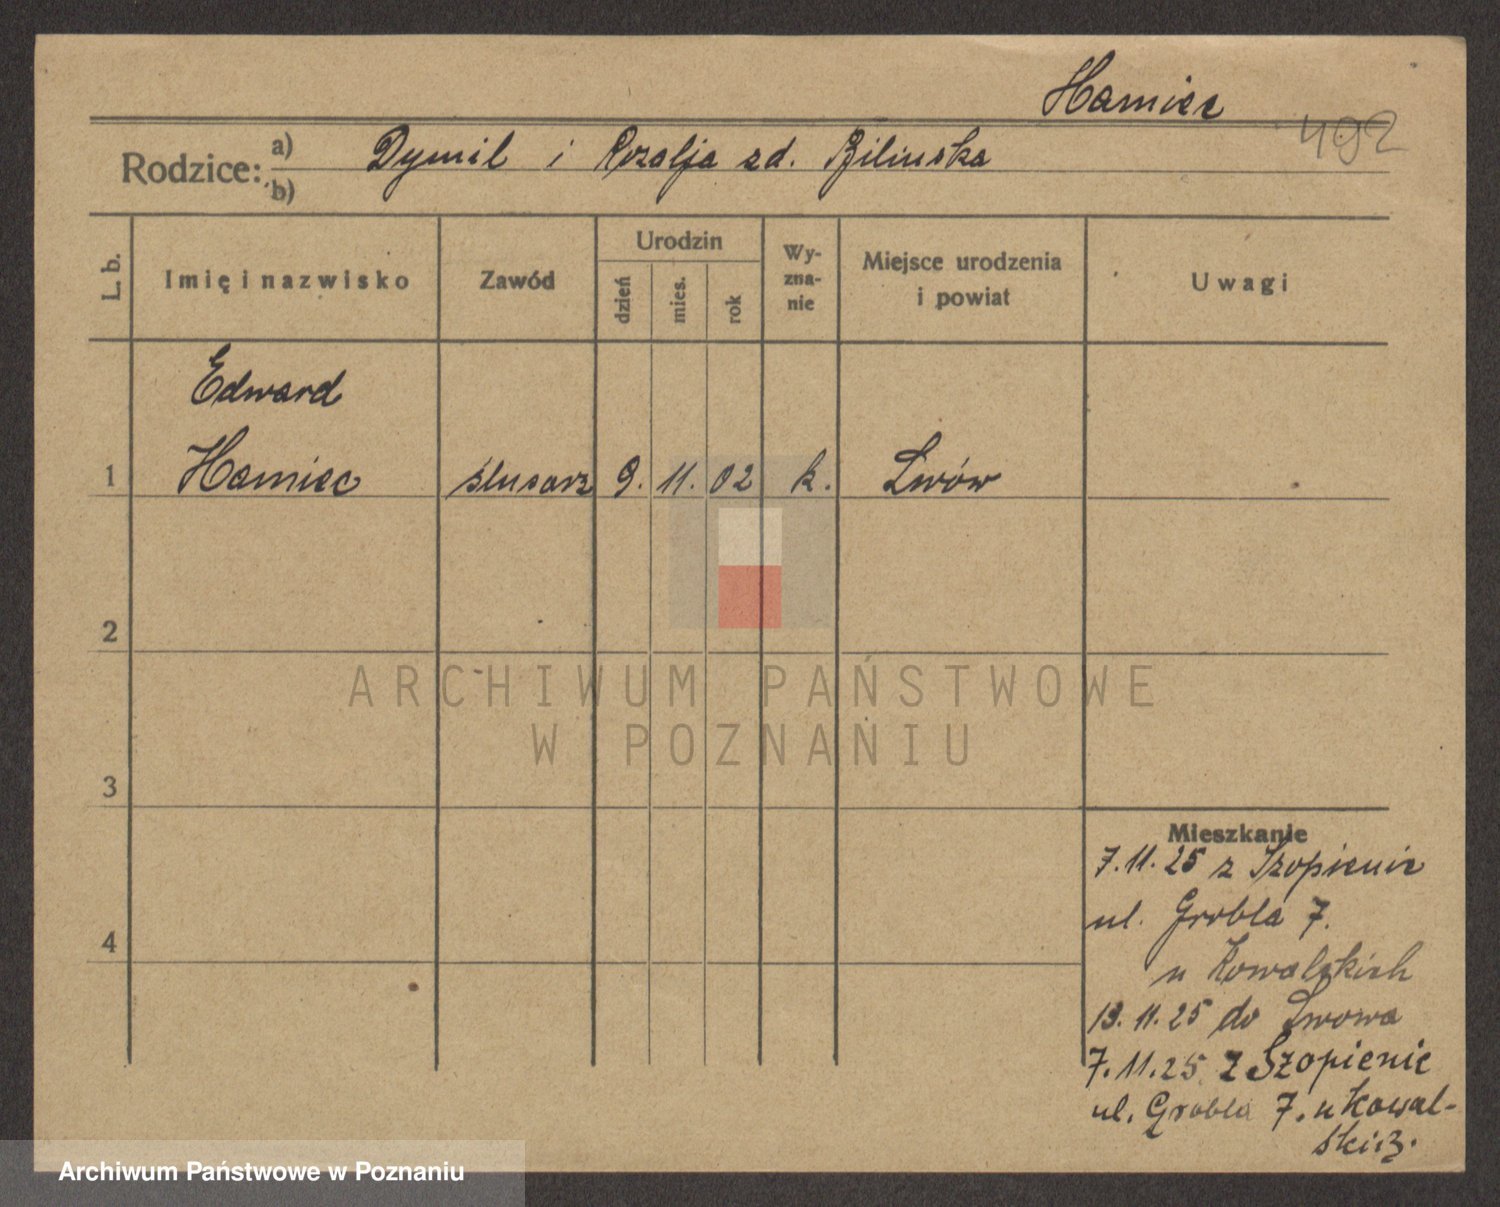 Hamiec
492
Rodzice: a) Dymil i Rozalja zd. Bilinska
b)
L. b.
Imię i nazwisko
Zawód
Urodzin
dzień
mies.
rok
Wy-
zna-
nie
Miejsce urodzenia
i powiat
Uwagi
Edward
1 Hamiec ślusarz 9. 11. 02 k. Lwów
2
3
4
Mieszkanie
7.11.25 z Szopienic
ul. Grobla 7.
u Kowalskich
13.11.25 do Lwowa
7.11.25 z Szopienic
ul. Grobla 7. u Kowal-
ARCHIWUM PAŃSTWOWE
W POZNANIU
Archiwum Państwowe w Poznaniu